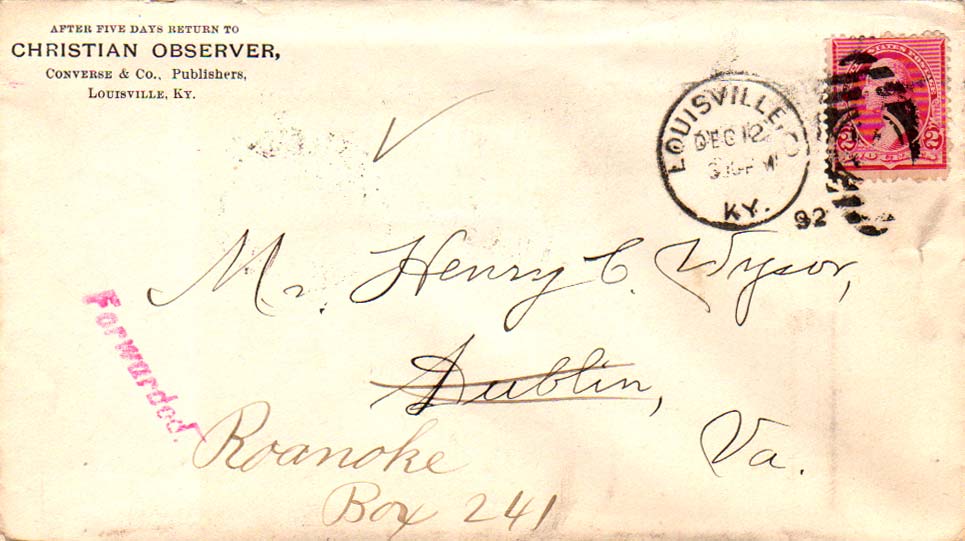 AFTER FIVE DAYS RETURN TO
CHRISTIAN OBSERVER,
CONVERSE & CO., PUBLISHERS,
LOUISVILLE, KY.
LOUISVILLE,
DEC 12
KY.
92
UNITED STATES POSTAGE
2
Mr. Henry C. Wysor,
Dublin,
Va.
Forwarded.
Roanoke
Box 241